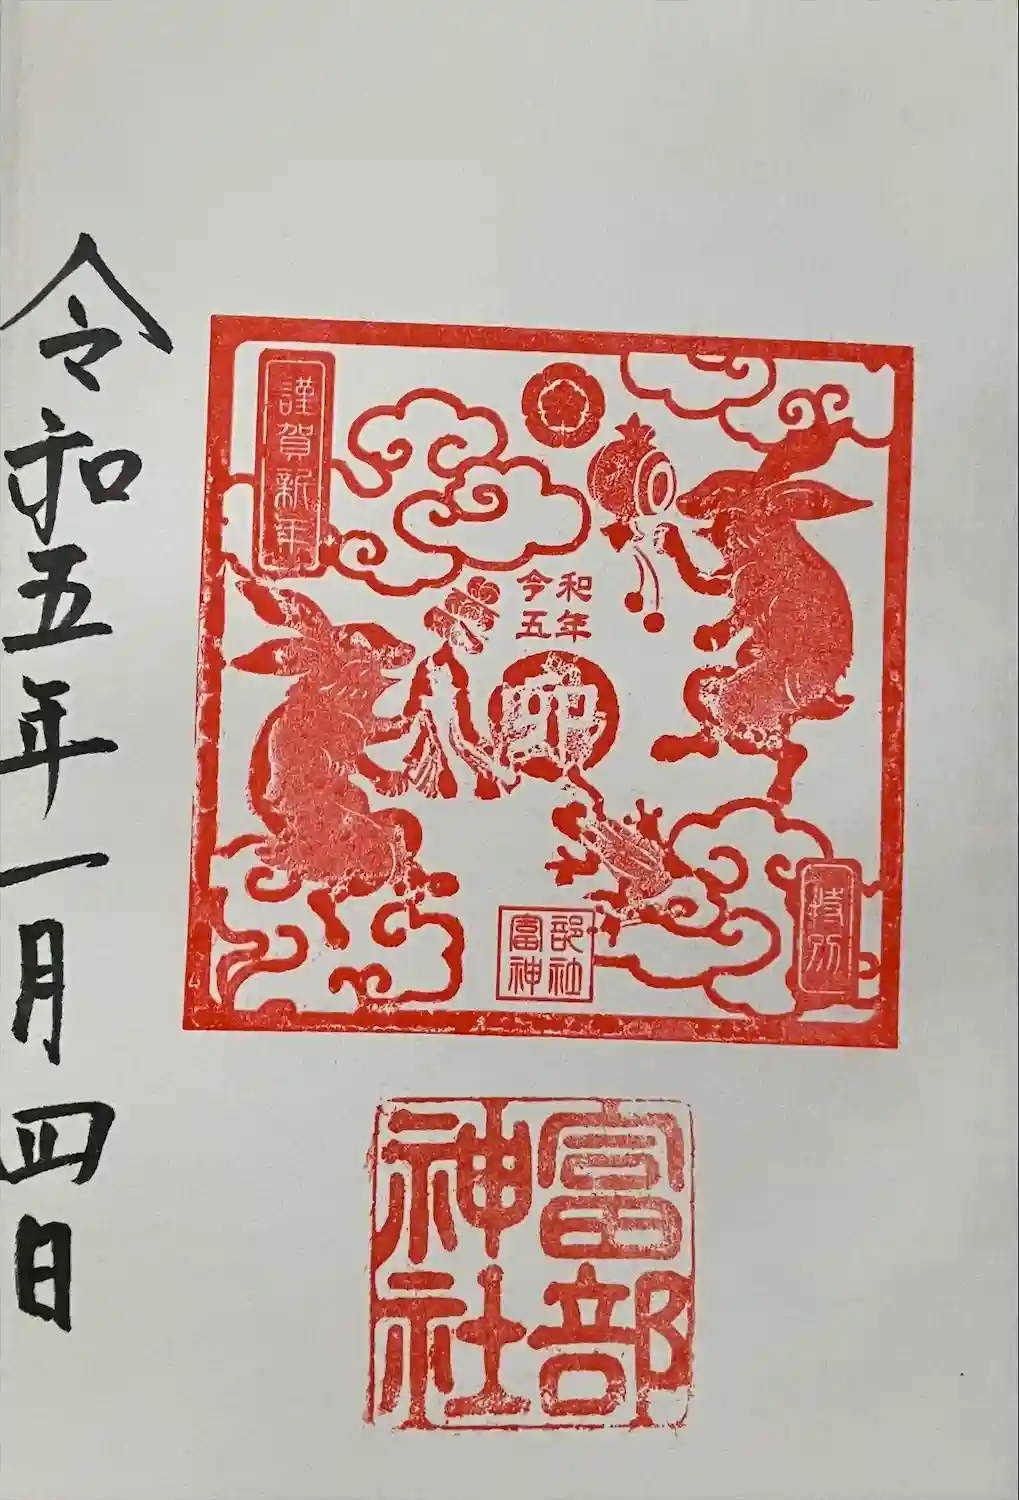 令和五年一月四日
謹賀新年
令和
五年
卯
特別
富部
神社
富部
神社